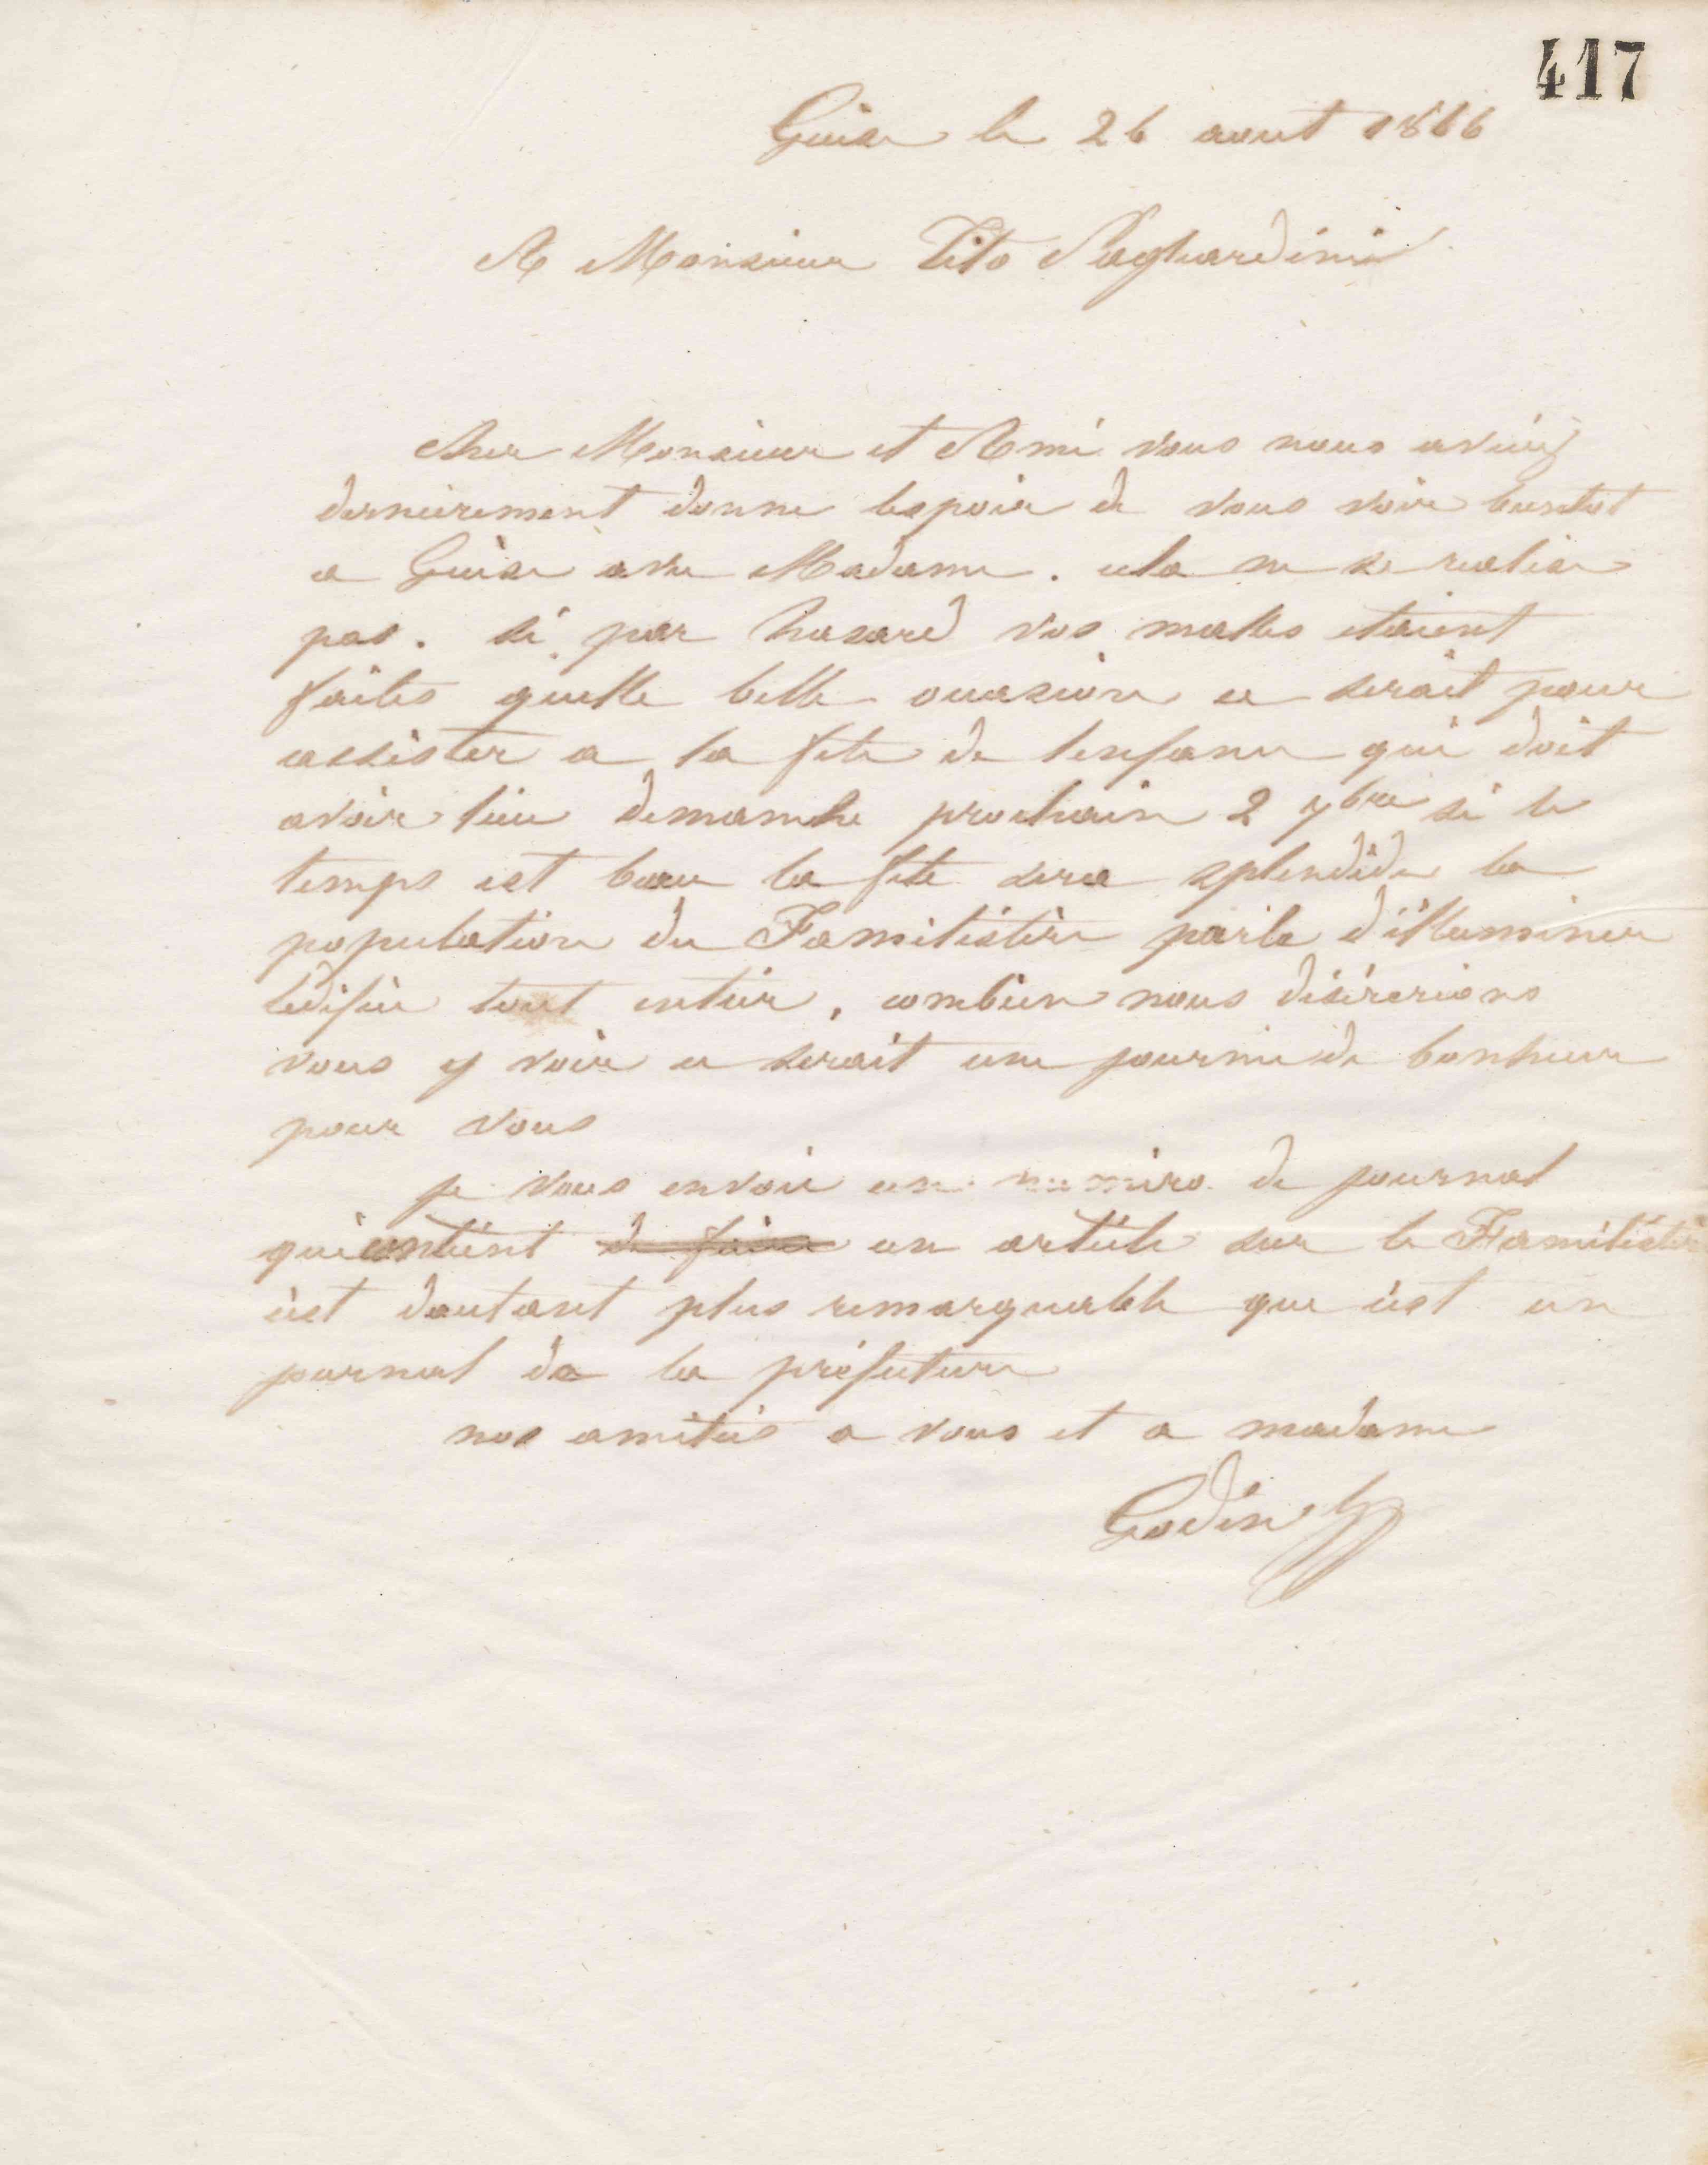 417
Guise le 26 aout 1866
A Monsieur Tito Pagliardini
Cher Monsieur et Ami vous nous aviez
dernierement donne lespoir de vous voir bientot
a Guise avec Madame. cela ne se realise
pas. si par hasard vos malles etaient
faites quelle belle occasion ce serait pour
assister a la fete de lenfance qui doit
avoir lieu dimanche prochain 2 7bre si le
temps est beau la fete sera splendide la
population du Familistère parle d'illuminer
ledifice tout entier, combien nous désirerions
vous y voir ce serait une journée de bonheur
pour vous
je vous envoie un numéro de journal
qui contient de faire un article sur le Familistère
cest dautant plus remarquable que cest un
journal de la préfecture
nos amitiés a vous et a madame
Godin